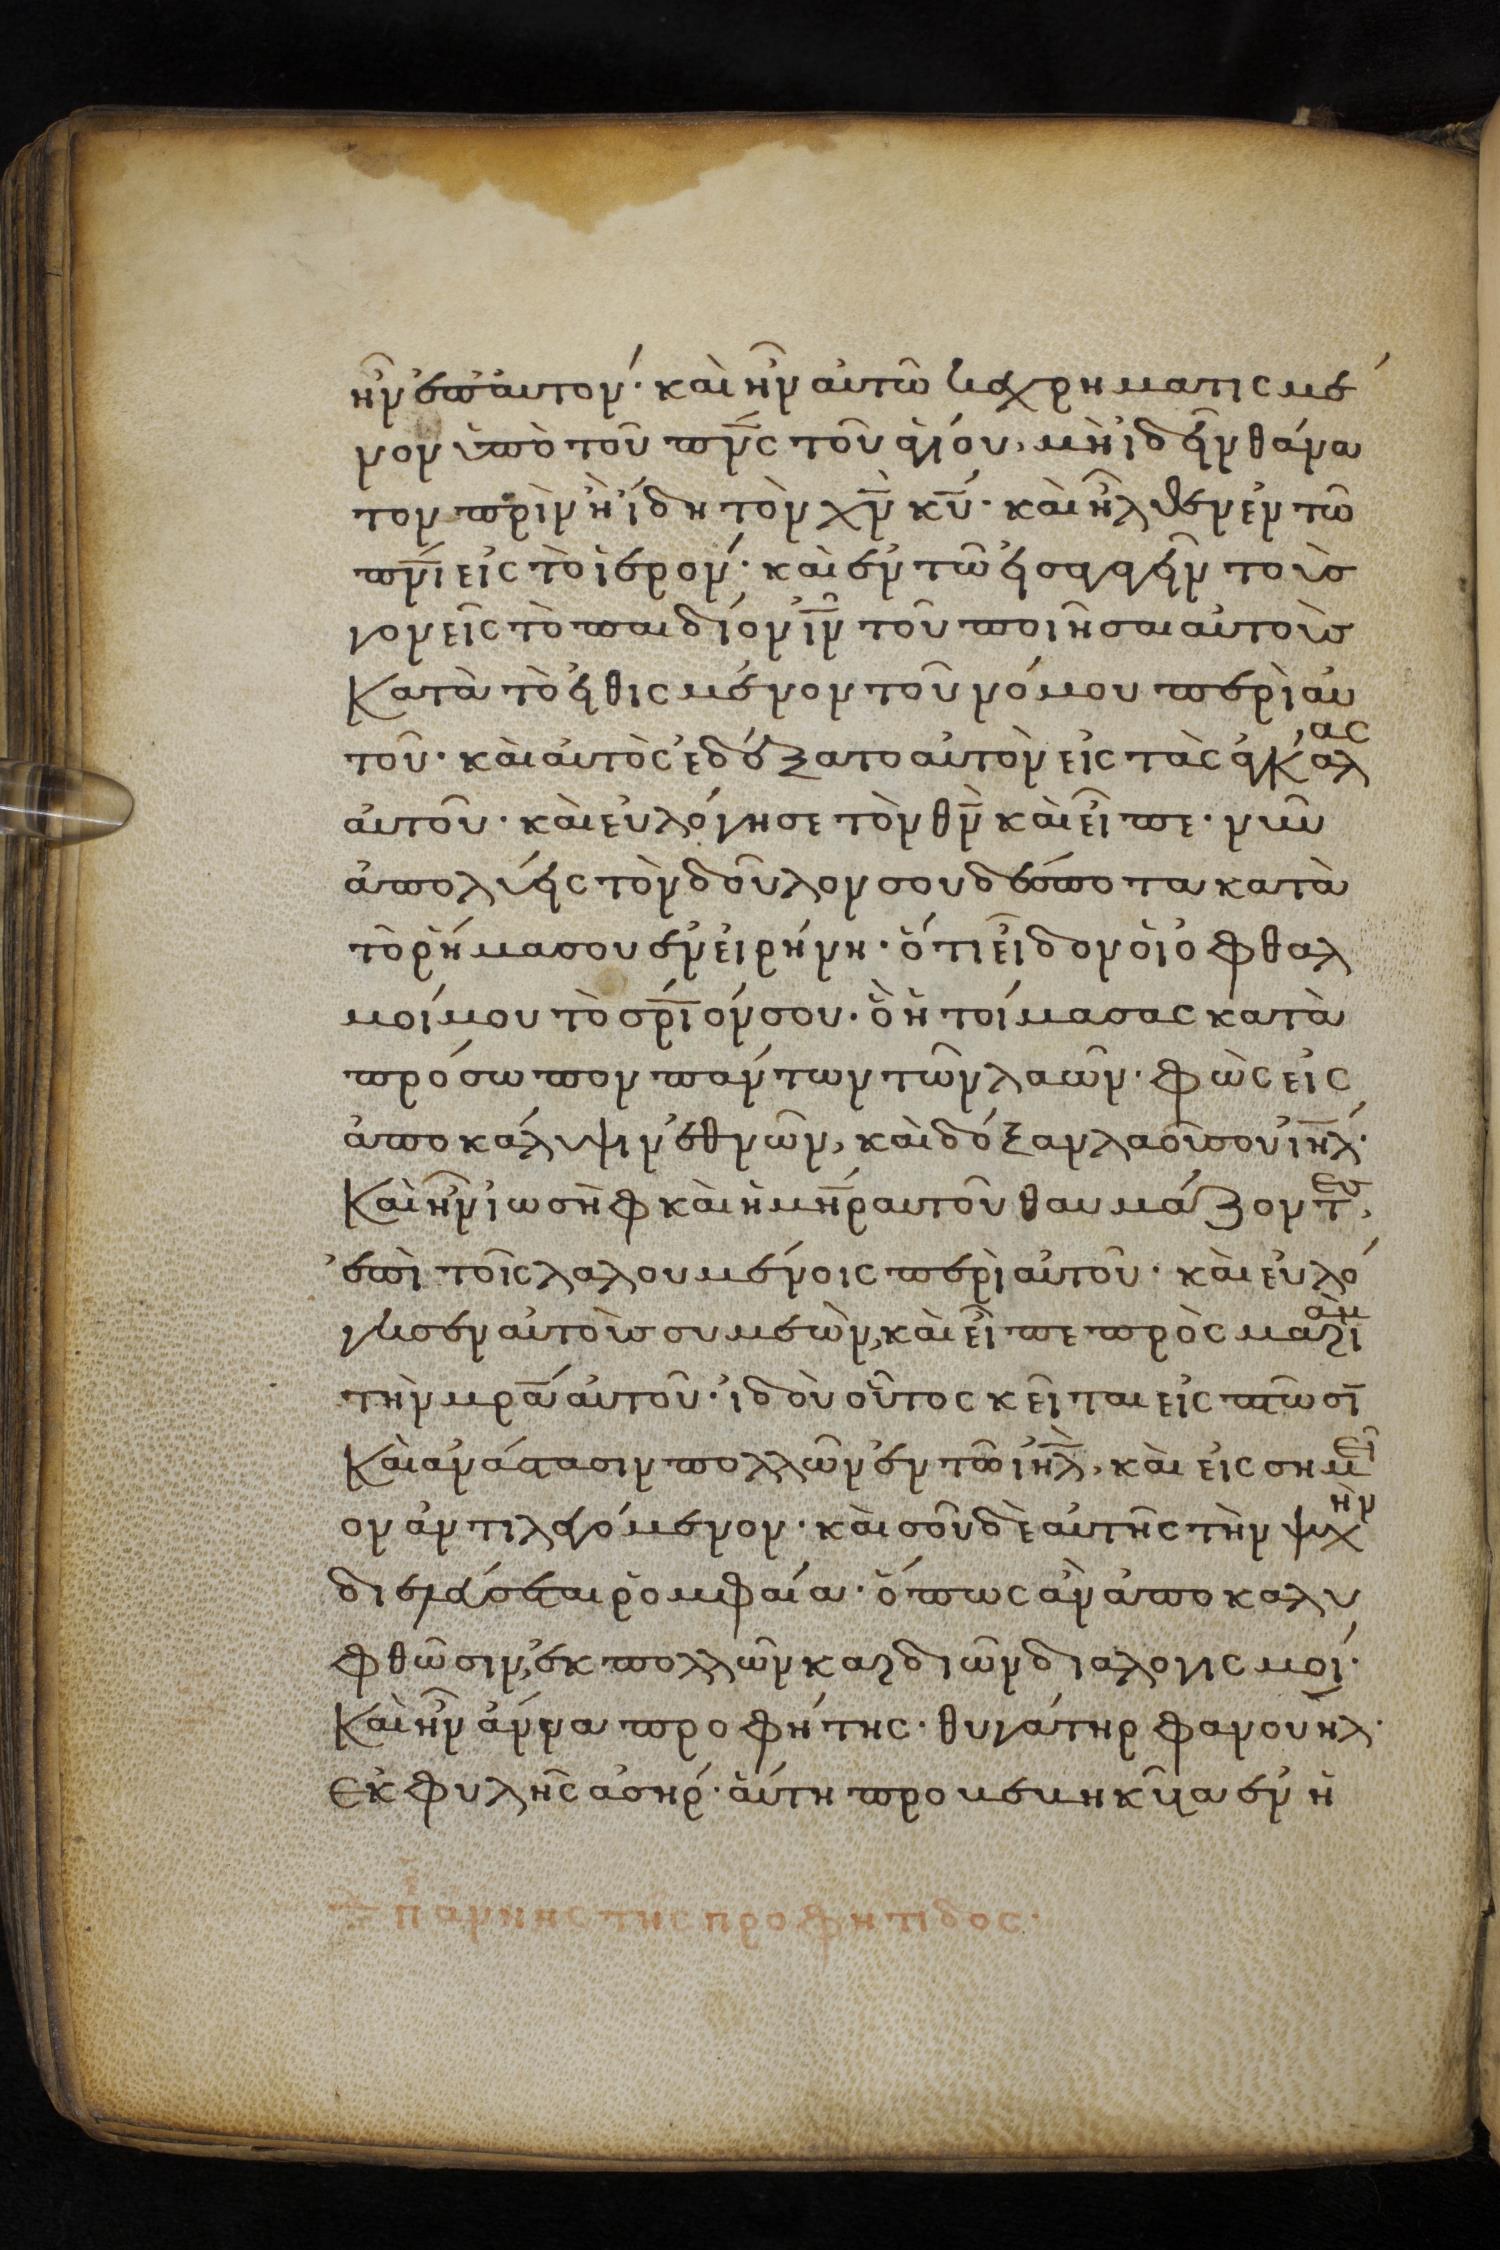 ἦν ἐπ' αυτον· καὶ ἦν αὐτῶ κεχρηματισμέ
νον ὑπὸ τοῦ πν̅ς τοῦ ἁγίου, μὴ ἰδεῖν θάνα
τον πρὶν ἢ ἴδη τὸν χν̅ κυ̅· καὶ ἦλθεν ἐν τῶ
πν̅ι εἰς τὸ ἱερόν· καὶ ἐν τῶ εἰσαγαγεῖν τοὺς
γονεῖς τὸ παιδίον ιν̅ τοῦ ποιῆσαι αὐτοὺς
κατὰ τὸ εἰθισμένον τοῦ νόμου περὶ αὐ
τοῦ· καὶ αὐτὸς ἐδέξατο αὐτὸν εἰς τὰς ἀγκάλας
αὐτοῦ· καὶ εὐλόγησε τὸν θν̅ καὶ εἶπε· νῦν
ἀπολύεις τὸν δοῦλον σου δέσποτα κατὰ
τὸ ῥῆμα σου ἐν εἰρήνη· ὅτι εἶδον ὁι ὀφθαλ
μοί μου τὸ σρ̅ιόν σου· ὃ ἡτοίμασας κατὰ
πρόσωπον πάντων τῶν λαῶν· φῶς εἰς
ἀποκάλυψιν ἐθνῶν, καὶ δόξαν λαοῦ σου ιη̅λ·
Καὶ ἦν ἰωσὴφ καὶ ἡ μη̅ρ αυτοῦ θαυμάζοντες,
ἐπὶ τοῖς λαλουμένοις περὶ αὐτοῦ· καὶ εὐλό
γησεν αὐτοὺς συμεὼν, καὶ εἶπε πρὸς μαριὰμ
τὴν μρ̅α αὐτοῦ· ἰδοὺ οὗτος κεῖται εἰς πτῶσῑ
Καὶ ἀνάστασιν πολλῶν ἐν τῶ ιη̅λ, καὶ εἰς σημεῖ
ον ἀντιλεγόμενον· καὶ σοῦ δὲ αὐτῆς τὴν ψυχὴν
διελεύσεται ῥομφαία· ὅπως ἂν ἀποκαλυ
φθῶσιν, ἐκ πολλῶν καρδιῶν διαλογισμοί·
Καὶ ἦν ἄννα προφήτης· θυγάτηρ φανουὴλ·
Ἐκ φυλῆς ἀσήρ· ἁύτη προβεβηκυῖα ἐν ἡ
π ἄννης τῆς προφήτιδος·